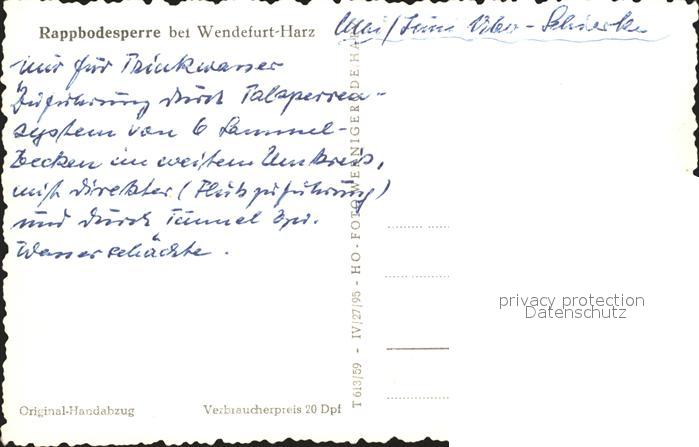 Rappbodesperre bei Wendefurt-Harz
Mai/Juni Urlaub - Schierke
nur für Trinkwasser
Zuführung durch Talsperren-
system von 6 Sammel-
becken im weitem Umkreis,
mit direkter (Flußzuführung)
und durch Tunnel bzw.
Wasserschächte.
T 613/59 - IV/27/95 - HO-FOTO WERNIGERODE/HARZ
Original-Handabzug
Verbraucherpreis 20 Dpf
privacy protection
Datenschutz